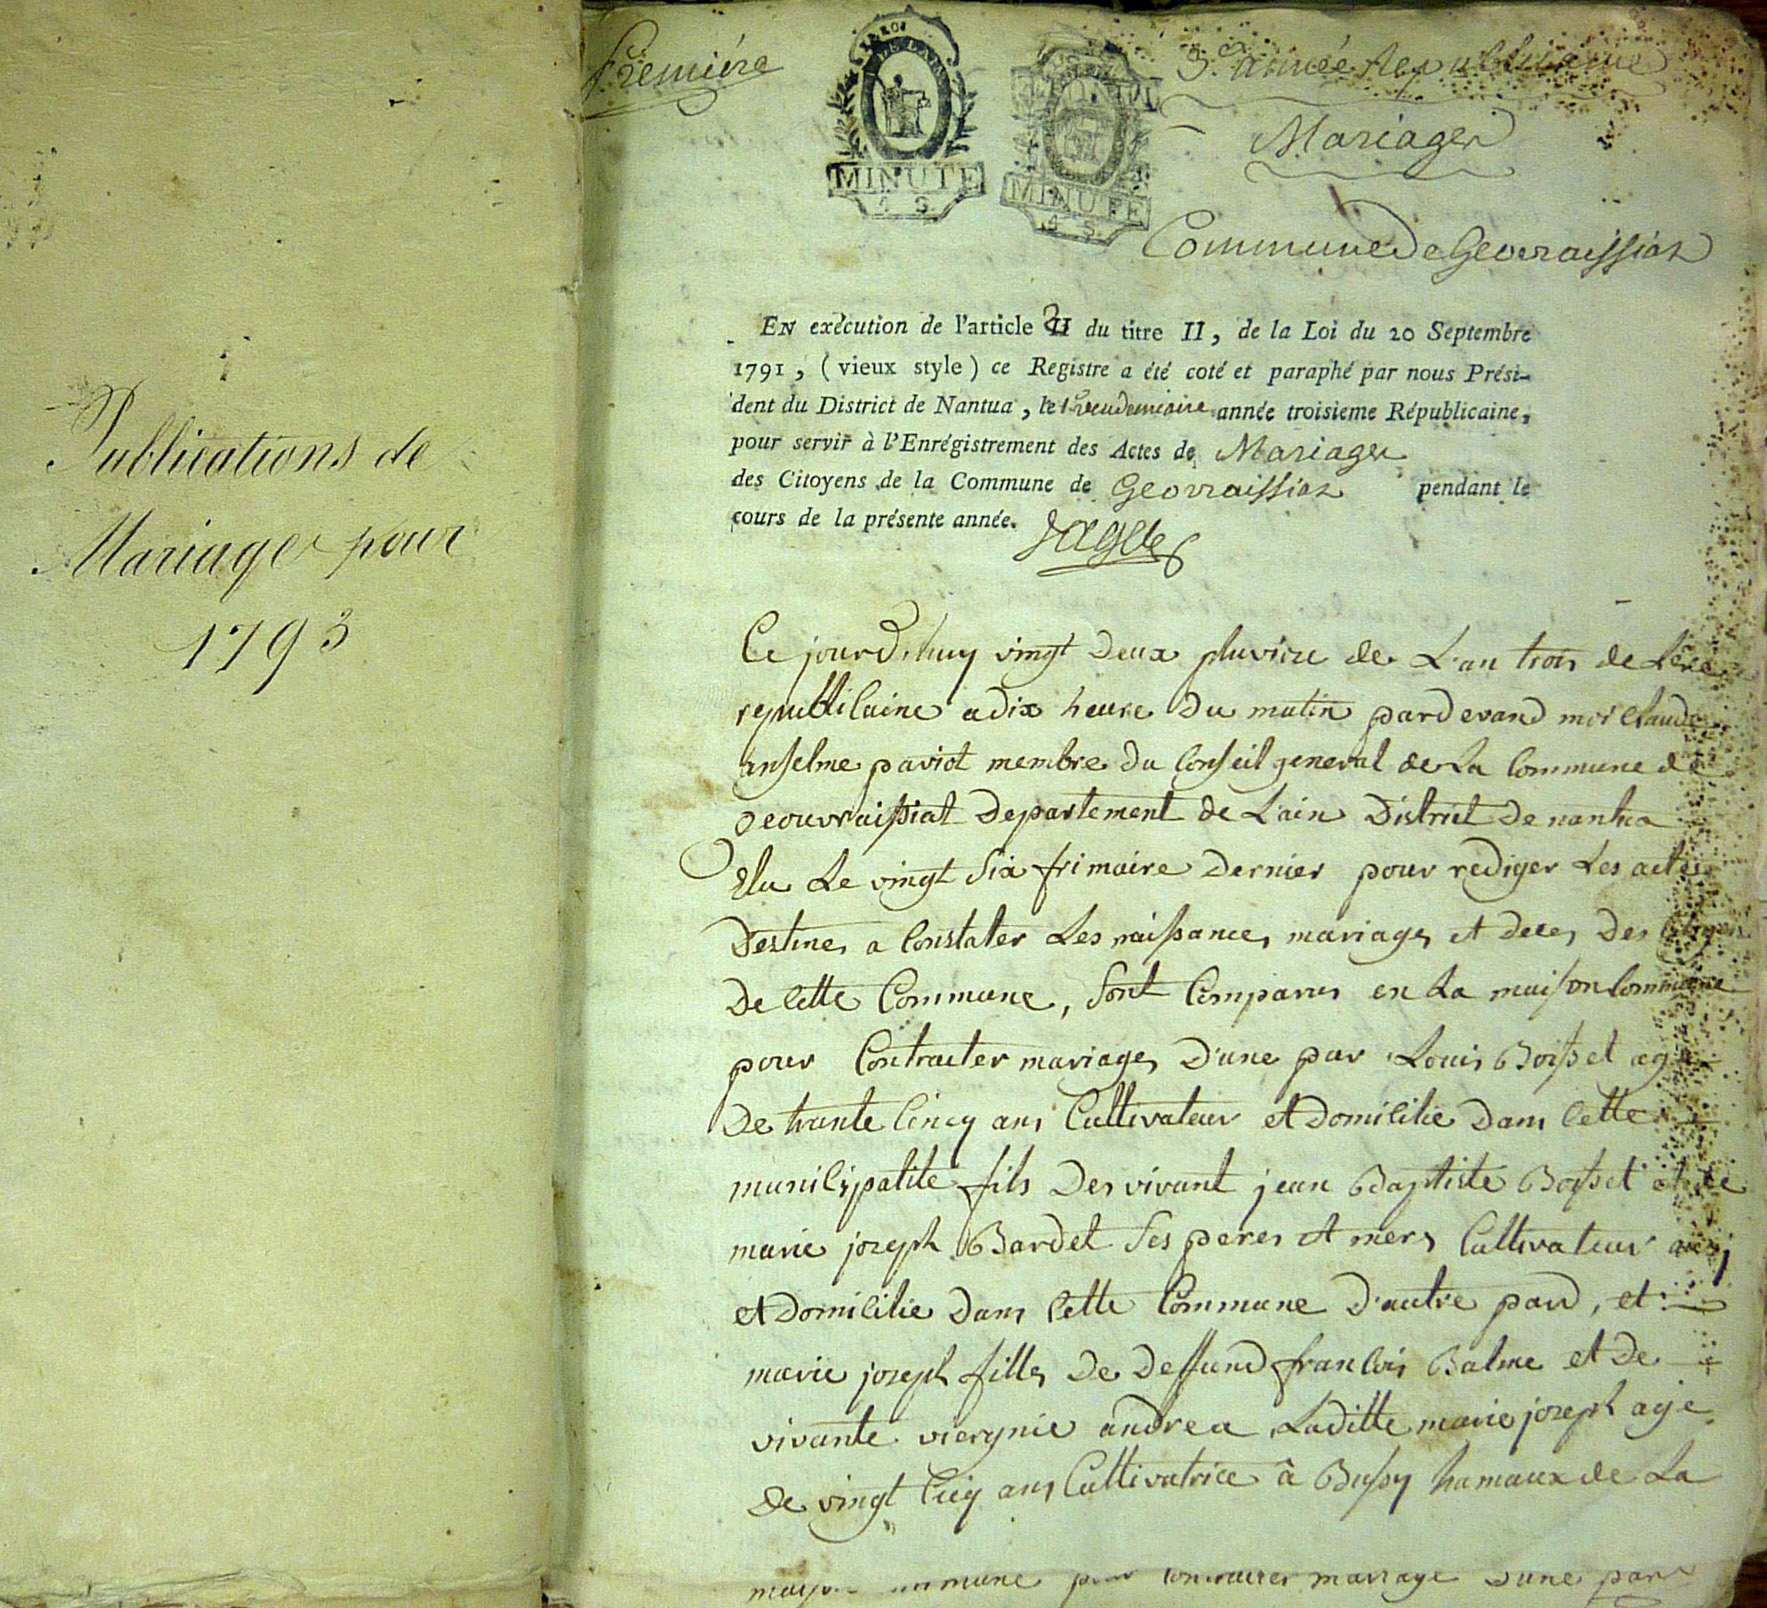 Publications de
Mariages pour
1793
Premiére
MINUTE
4 S.
MINUTE
4 S.
3.e année Republicaine
Mariages
Commune De Geovraissiat
EN exécution de l'article II du titre II, de la Loi du 20 Septembre
1791, (vieux style) ce Registre a été coté et paraphé par nous Prési-
dent du District de Nantua, le 1.er vendemiaire année troisieme Républicaine,
pour servir à l'Enrégistrement des Actes de Mariages
des Citoyens de la Commune de Geovraissiat pendant le
cours de la présente année.
Ce jourd'huy vingt Deux pluviose de L'an trois de L'ere
republicaine a dix heure Du matin pardevand moi Claude
anselme paviot membre Du Conseil general de La Commune de
geouvraissiat Departement de L'ain District De nantua
Elu Le vingt Six frimaire Dernier pour rediger Les actes
Destines a Constater Les naissances mariages et deces Des Citoyens
De Cette Commune, Sont Comparus en La maison Commune
pour Contracter mariages D'une par Louis Boisset age
De trante Cincq ans Cultivateur et Domicilie Dans Cette
municipalité fils Des vivant jean Baptiste Boisset et de
marie joseph Bardet Ses peres et meres Cultivateur
et Domicilie Dans Cette Commune D'autre pard, et
marie joseph fille De Deffund francois Balme et De
vivante viergnie andrea Laditte marie joseph agé
de vingt Cicq ans Cultivatrice à Bussy hamaux de La
commune pour contracter mariage D'une part